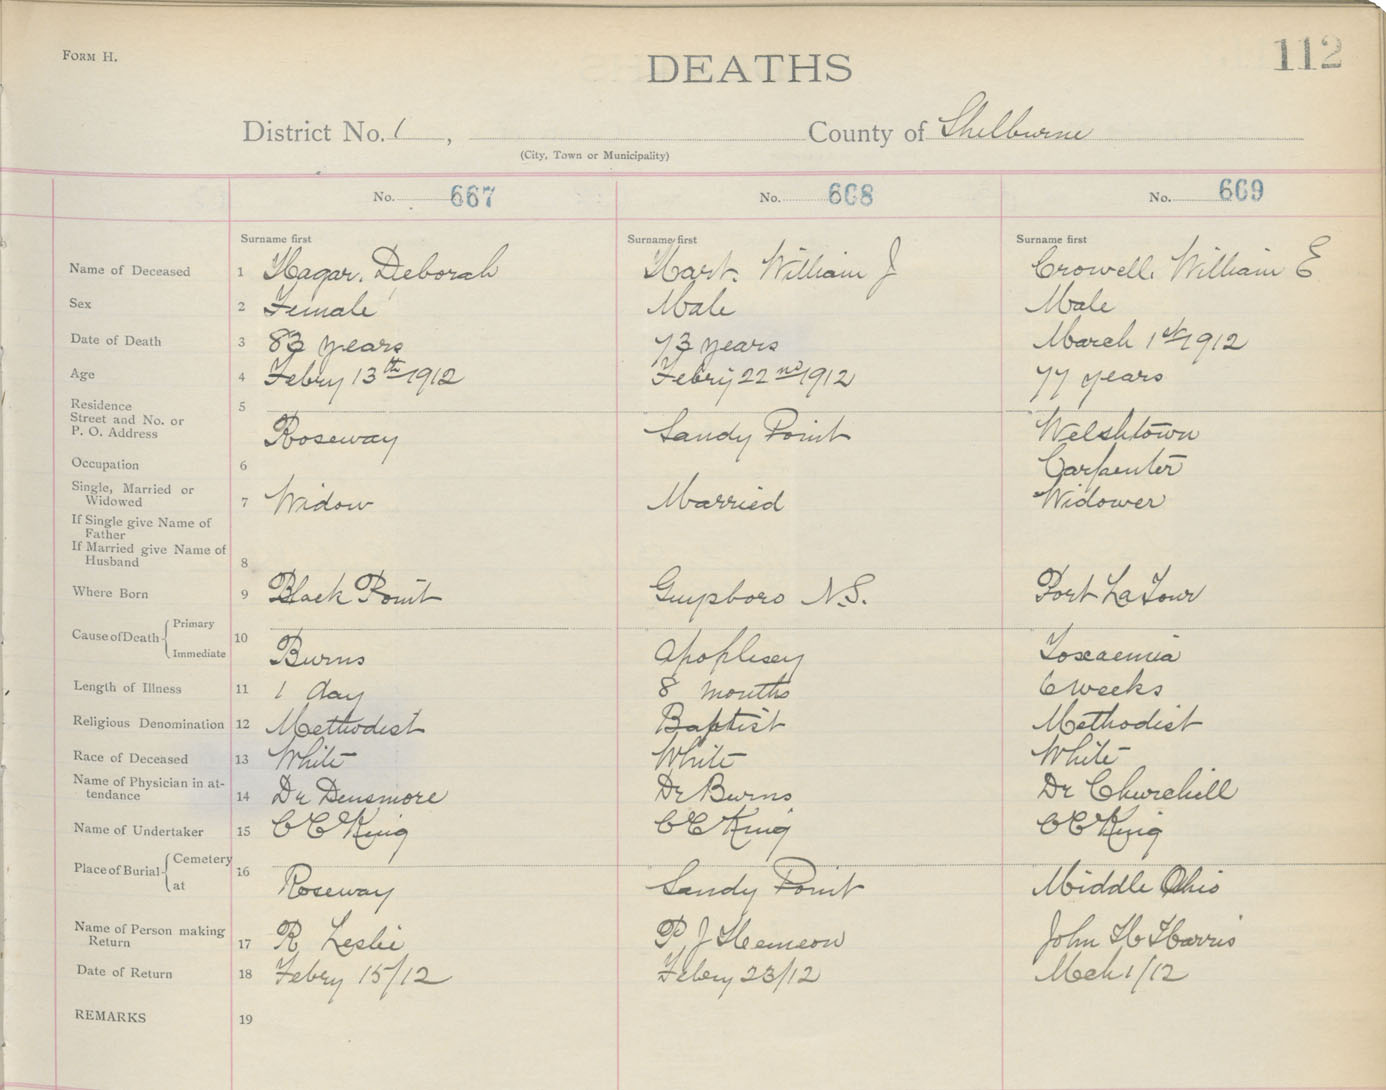 FORM H.
DEATHS
112
District No. 1, County of Shelburne
(City, Town or Municipality)
No. 667 No. 668 No. 669
Surname first Surname first Surname first
Name of Deceased 1 Hagar. Deborah Hart. William J Crowell. William E
Sex 2 Female Male Male
Date of Death 3 83 years 73 years March 1st 1912
Age 4 Febry 13th 1912 Febry 22nd 1912 77 years
Residence 5
Street and No. or
P. O. Address Roseway Sandy Point Welshtown
Occupation 6 Carpenter
Single, Married or
Widowed 7 Widow Married Widower
If Single give Name of
Father
If Married give Name of
Husband 8
Where Born 9 Black Point Guysboro N.S. Port La Tour
Cause of Death Primary 10
Immediate Burns Apoplexy Toxaemia
Length of Illness 11 1 day 8 months 6 weeks
Religious Denomination 12 Methodist Baptist Methodist
Race of Deceased 13 White White White
Name of Physician in at-
tendance 14 Dr Densmore Dr Burns Dr Churchill
Name of Undertaker 15 C C King C C King C C King
Place of Burial Cemetery 16
at Roseway Sandy Point Middle Ohio
Name of Person making
Return 17 R Leslie P J Hemeon John H Harris
Date of Return 18 Febry 15/12 Febry 23/12 Mch 1/12
REMARKS 19